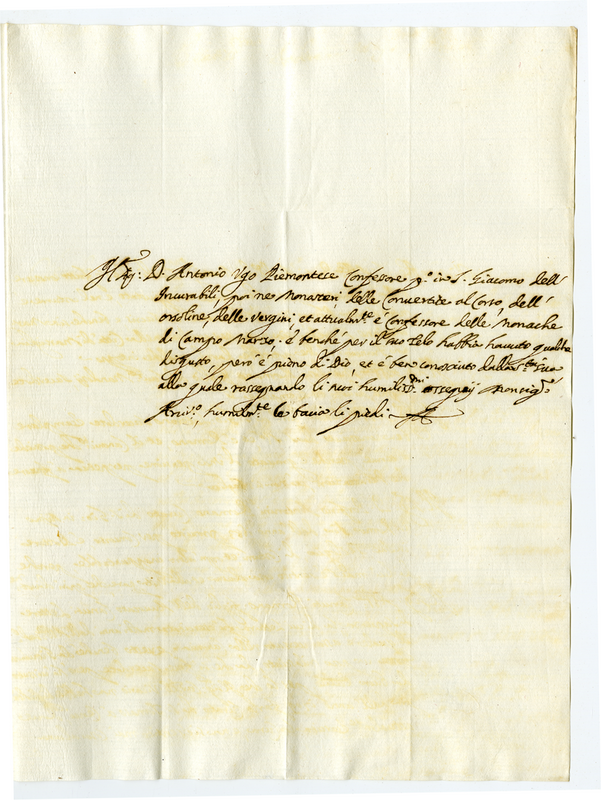 D. Antonio Ugo Piemontese Confessore p.º in S. Giacomo dell'
Incurabili, poi ne Monasteri delle Convertite al Corso, dell'
orsoline, delle Vergini, et attualm.te é Confessore delle Monache
di Campo Marzo, é benche per il suo Zelo habbia havuto qualche
disgusto, però é pieno di Dio, et é ben conosciuto dalla S.tà Sua
alla quale rassegnando li suoi humiliss.mi ossequij Monsig.r
Arciv.º, humilm.te le bacia li piedi